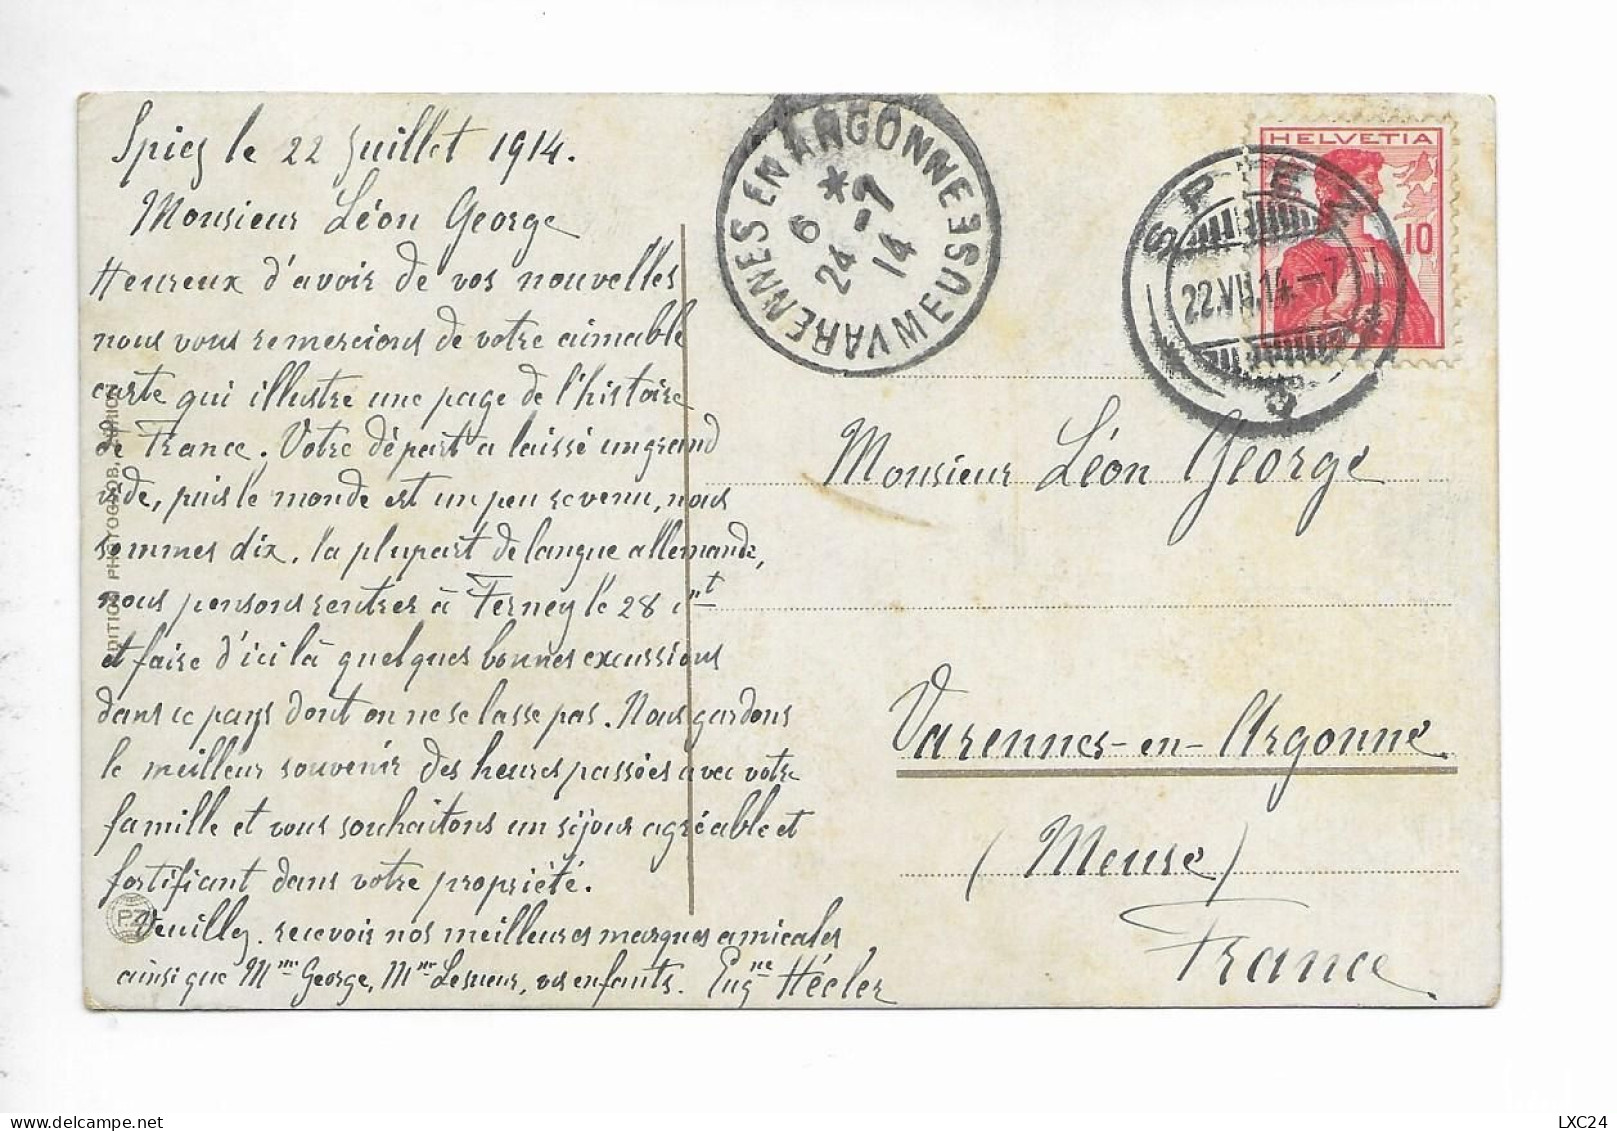 Spiez le 22 Juillet 1914.
Monsieur Léon George
Heureux d'avoir de vos nouvelles
nous vous remercions de votre aimable
carte qui illustre une page de l'histoire
de France. Votre départ a laissé un grand
vide, puis le monde est un peu revenu, nous
sommes dix, la plupart de langue allemande,
nous pensons rentrer à Ferney le 28 ct
et faire d'ici là quelques bonnes excursions
dans ce pays dont on ne se lasse pas. Nous gardons
le meilleur souvenir des heures passées avec votre
famille et vous souhaitons un séjour agréable et
fortifiant dans votre propriété.
Veuillez recevoir nos meilleures marques amicales
ainsi que Mme George, Mme Lesueur, vos enfants. Eugne Hécler
EDITION PHOTOGLOB, ZÜRICH
P.Z
VARENNES EN ARGONNE MEUSE
*
6
24 -7
14
HELVETIA
10
SPIEZ
22.VII.14.-7
Monsieur Léon George
Varennes-en-Argonne
(Meuse)
France
LXC24